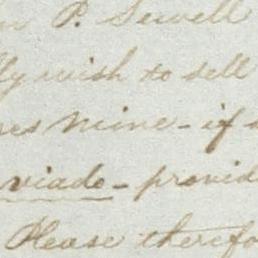 P. Sewell
wish to sell
mine - if
viado - provid
Please therefo